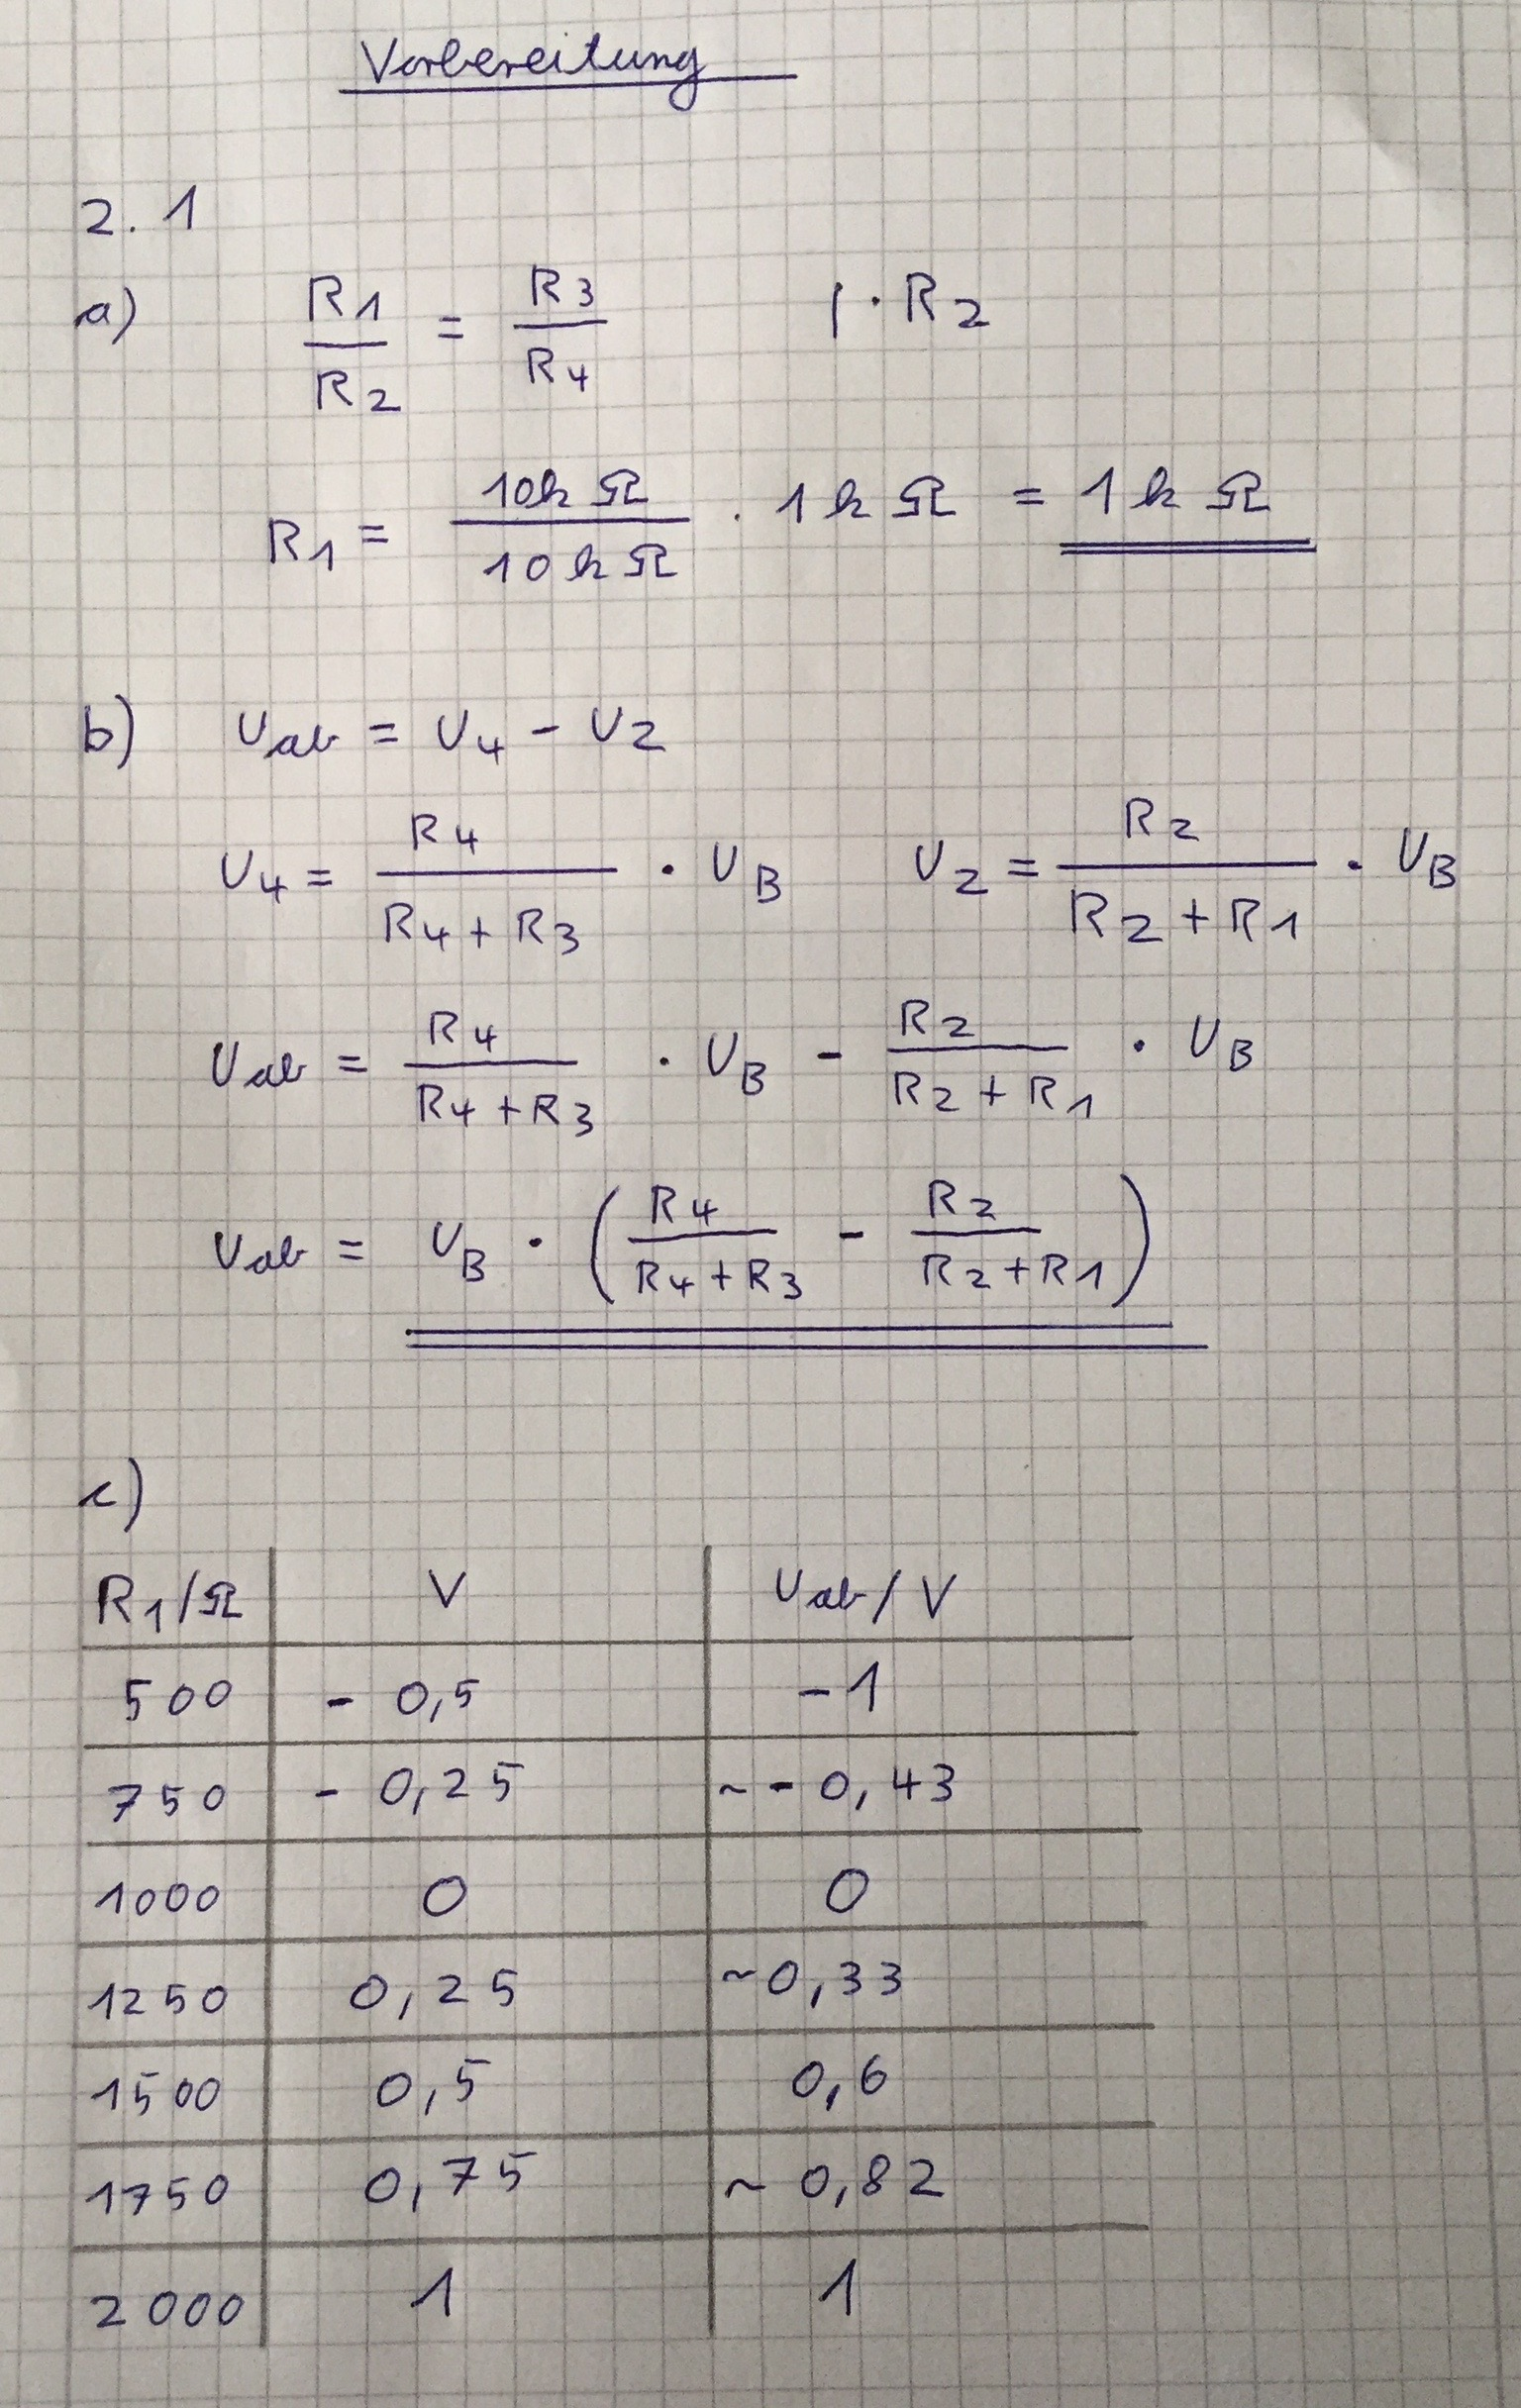 Vorbereitung
2.1
a) R1/R2 = R3/R4 | · R2
R1 = 10kΩ/10kΩ · 1kΩ = 1kΩ
b) Uab = U4 - U2
U4 = R4/(R4+R3) · UB U2 = R2/(R2+R1) · UB
Uab = R4/(R4+R3) · UB - R2/(R2+R1) · UB
Uab = UB · (R4/(R4+R3) - R2/(R2+R1))
c)
R1/Ω V Uab/V
500 - 0,5 -1
750 - 0,25 ~ - 0,43
1000 0 0
1250 0,25 ~0,33
1500 0,5 0,6
1750 0,75 ~ 0,82
2000 1 1